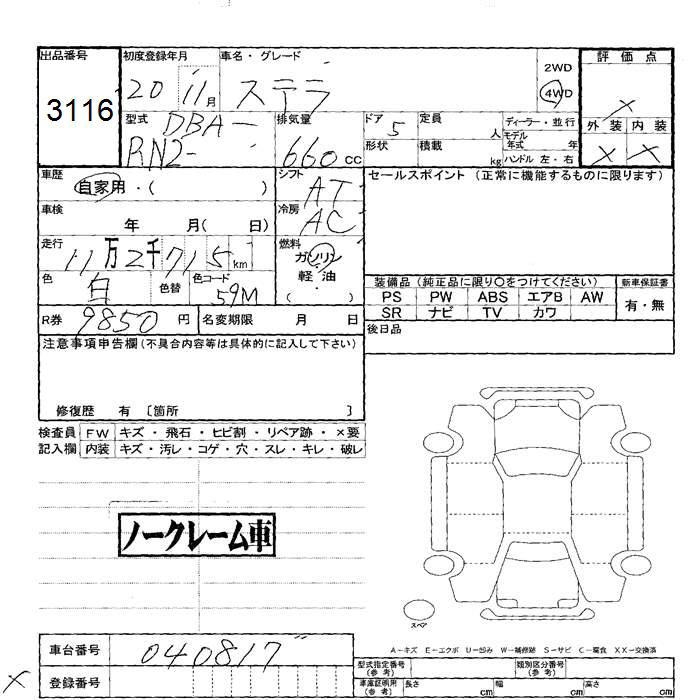 出品番号 初度登録年月 車名・グレード 評価点
3116 20 11月 ステラ 2WD 4WD ×
型式 DBA- RN2- 排気量 660cc ドア 5 定員 人 ディーラー・並行 外装 内装
形状 積載 kg モデル年式 年 ハンドル 左・右 × ×
車歴 自家用・( ) シフト AT セールスポイント (正常に機能するものに限ります)
車検 年 月( 日) 冷房 AC
走行 11万2千715km 燃料 ガソリン 軽・油 ( )
色 白 色替 色コード 59M 装備品 (純正品に限り○をつけてください) 新車保証書
PS PW ABS エアB AW 有・無
SR ナビ TV カワ
R券 9850円 名変期限 月 日 後日品
注意事項申告欄 (不具合内容等は具体的に記入して下さい)
修復歴 有 [箇所 ]
検査員 FW キズ・飛石・ヒビ割・リペア跡・×要
記入欄 内装 キズ・汚レ・コゲ・穴・スレ・キレ・破レ
ノークレーム車
スペア
車台番号 040817
A-キズ E-エクボ U-凹み W-補修跡 S-サビ C-腐食 XX-交換済
型式指定番号 (参考) 類別区分番号 (参考)
× 登録番号 車庫証明用 (参考) 長さ cm 幅 cm 高さ cm